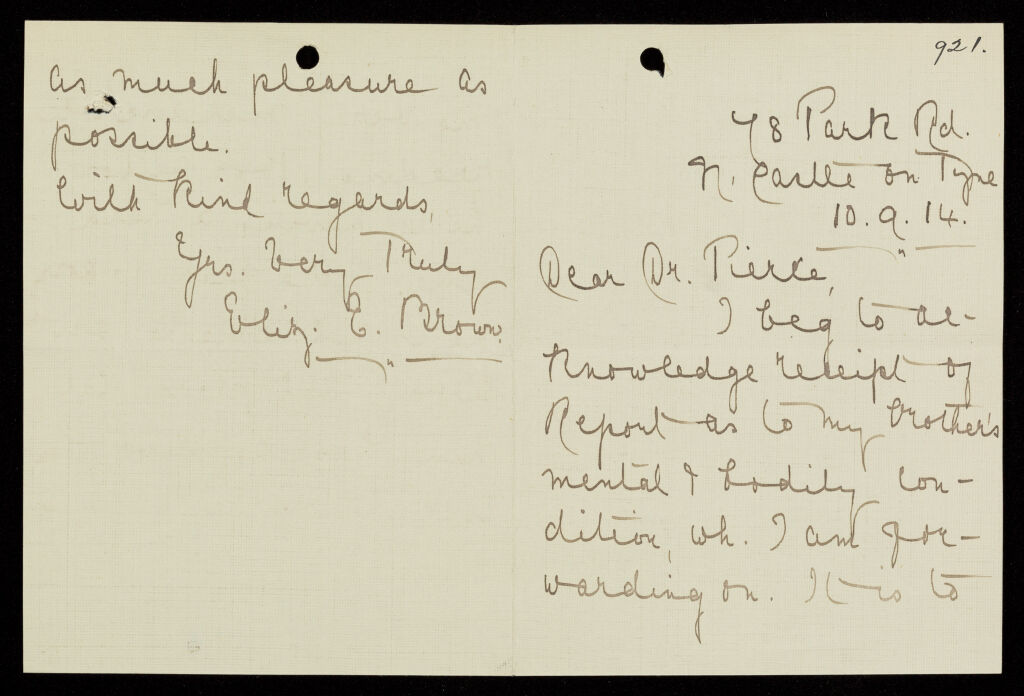 921.
78 Park Rd.
N. Castle on Tyne
10.9.14.
Dear Dr. Pierce,
I beg to ac-
knowledge receipt of
Report as to my brother's
mental & bodily con-
dition, wh. I am for-
warding on. It is to
as much pleasure as
possible.
With kind regards,
Yrs. very Truly
Eliz. E. Brown.